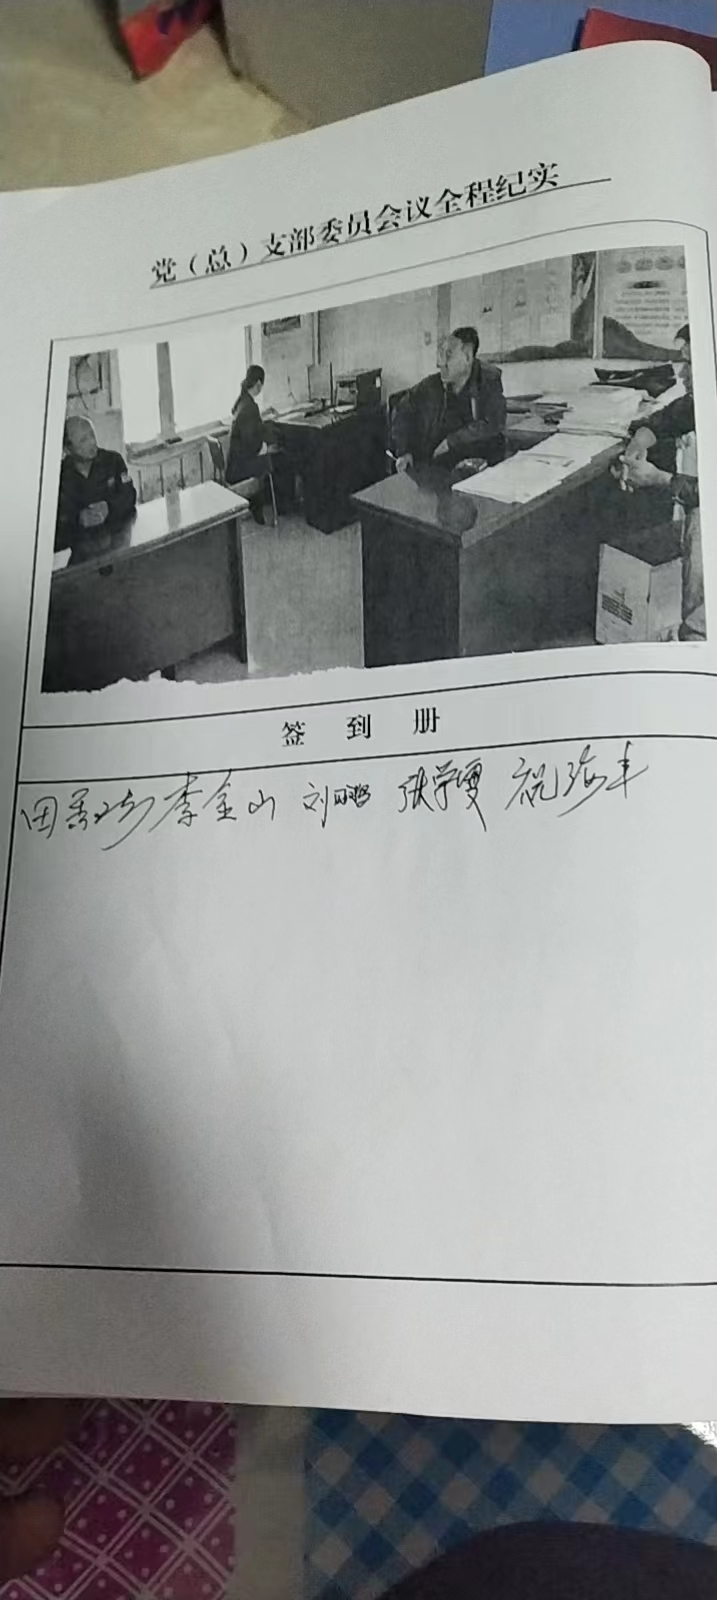 党（总）支部委员会议全程纪实
签 到 册
田 李金山 刘鹏 张学雯 祝海丰